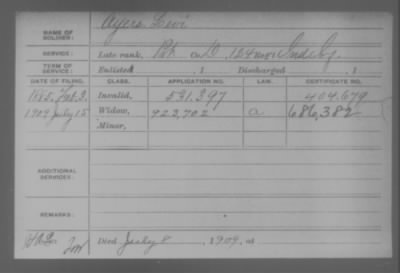 NAME OF SOLDIER: Ayers Levi
SERVICE: Late rank, Pvt Co D, 124 Inds Inf
TERM OF SERVICE: Enlisted , 1 Discharged , 1
DATE OF FILING. CLASS. APPLICATION NO. LAW. CERTIFICATE NO.
1885, Feb. 3. Invalid, 531.397 404.679
1909 July 15 Widow, 923,702 a 686,382
Minor,
ADDITIONAL SERVICES:
REMARKS:
Died July 8, 1909, at